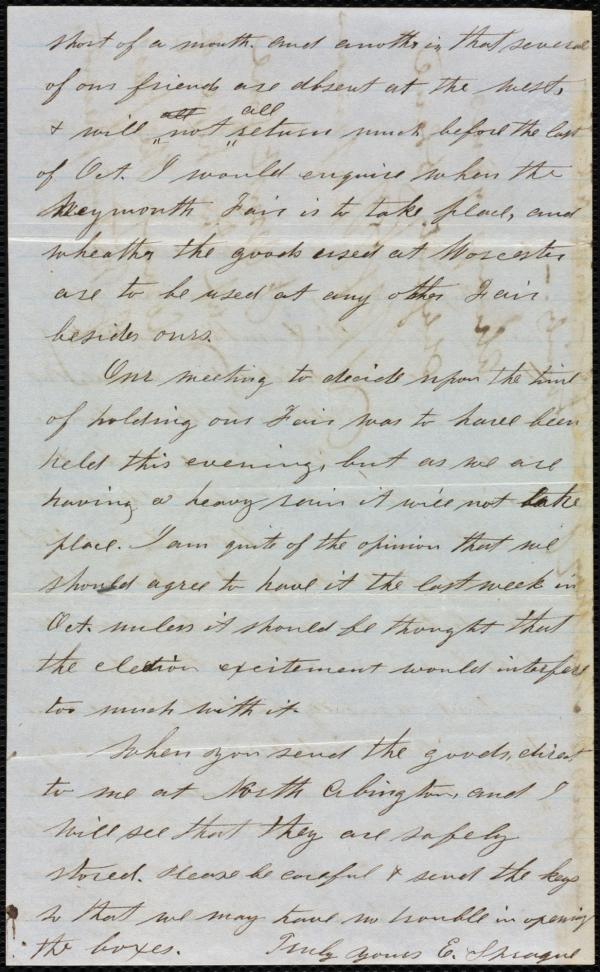 short of a month. and another is that several
of our friends are absent at the west,
& will "not" all return much before the last
of Oct. I would enquire when the
Weymouth Fair is to take place, and
wheather the goods used at Worcester
are to be used at any other Fair
besides ours.
Our meeting to decide upon the time
of holding our Fair was to have been
held this evening, but as we are
having a heavy rain it will not take
place. I am quite of the opinion that we
should agree to have it the last week in
Oct. unless it should be thought that
the election excitement would interfere
too much with it.
When you send the goods, direct
to me at North Abington, and I
will see that they are safely
stored. Please be careful & send the keys
so that we may have no trouble in opening
the boxes. Truly yours E. Sprague